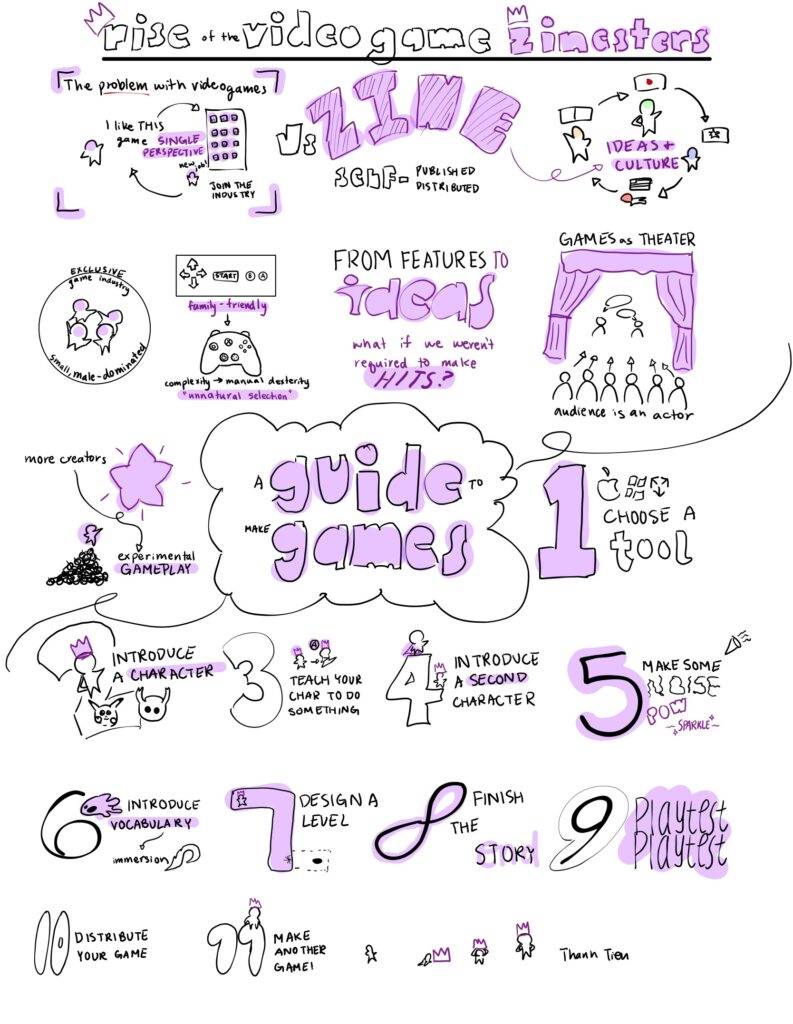 rise of the video game zinesters
The problem with videogames
I like THIS
game SINGLE
PERSPECTIVE
new job!
JOIN THE
INDUSTRY
Vs
ZINE
SELF- PUBLISHED
DISTRIBUTED
IDEAS +
CULTURE
EXCLUSIVE
game industry
small, male-dominated
START B A
family-friendly
complexity → manual dexterity
"unnatural selection"
FROM FEATURES TO
ideas
what if we weren't
required to make
HITS?
GAMES as THEATER
audience is an actor
more creators
experimental
GAMEPLAY
A guide TO
MAKE games
1
CHOOSE A
tool
2
INTRODUCE
A CHARACTER
3
A
TEACH YOUR
CHAR TO DO
SOMETHING
4
INTRODUCE
A SECOND
CHARACTER
5
MAKE SOME
NOISE
POW
~SPARKLE~
6
INTRODUCE
VOCABULARY
immersion
7
DESIGN A
LEVEL
8
FINISH
THE
STORY
9
Playtest
Playtest
10
DISTRIBUTE
YOUR GAME
11
MAKE
ANOTHER
GAME!
Thanh Tien